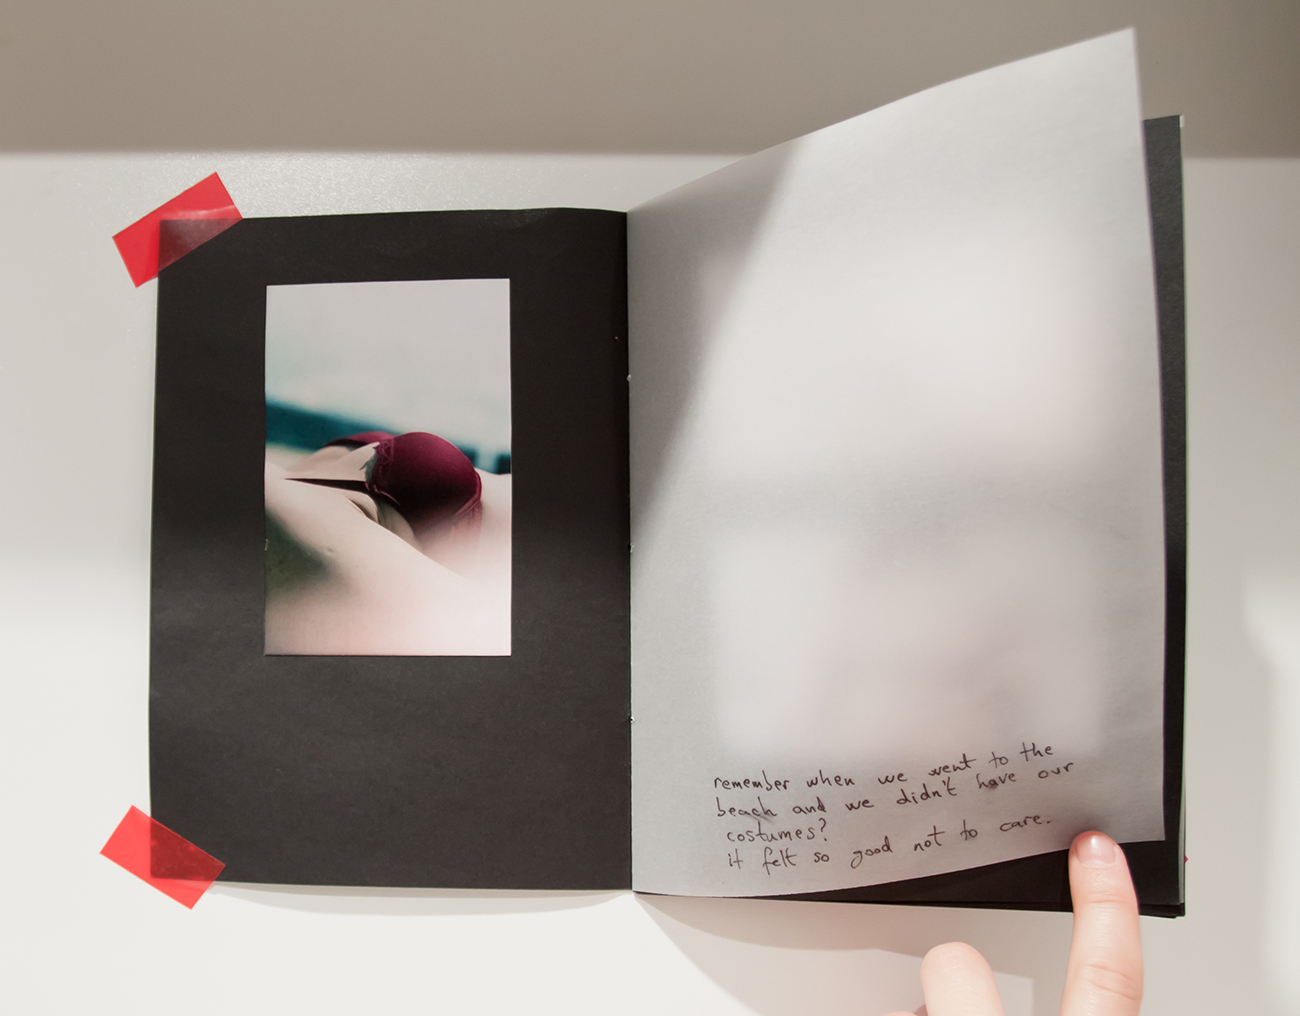 remember when we went to the
beach and we didn't have our
costumes?
it felt so good not to care.